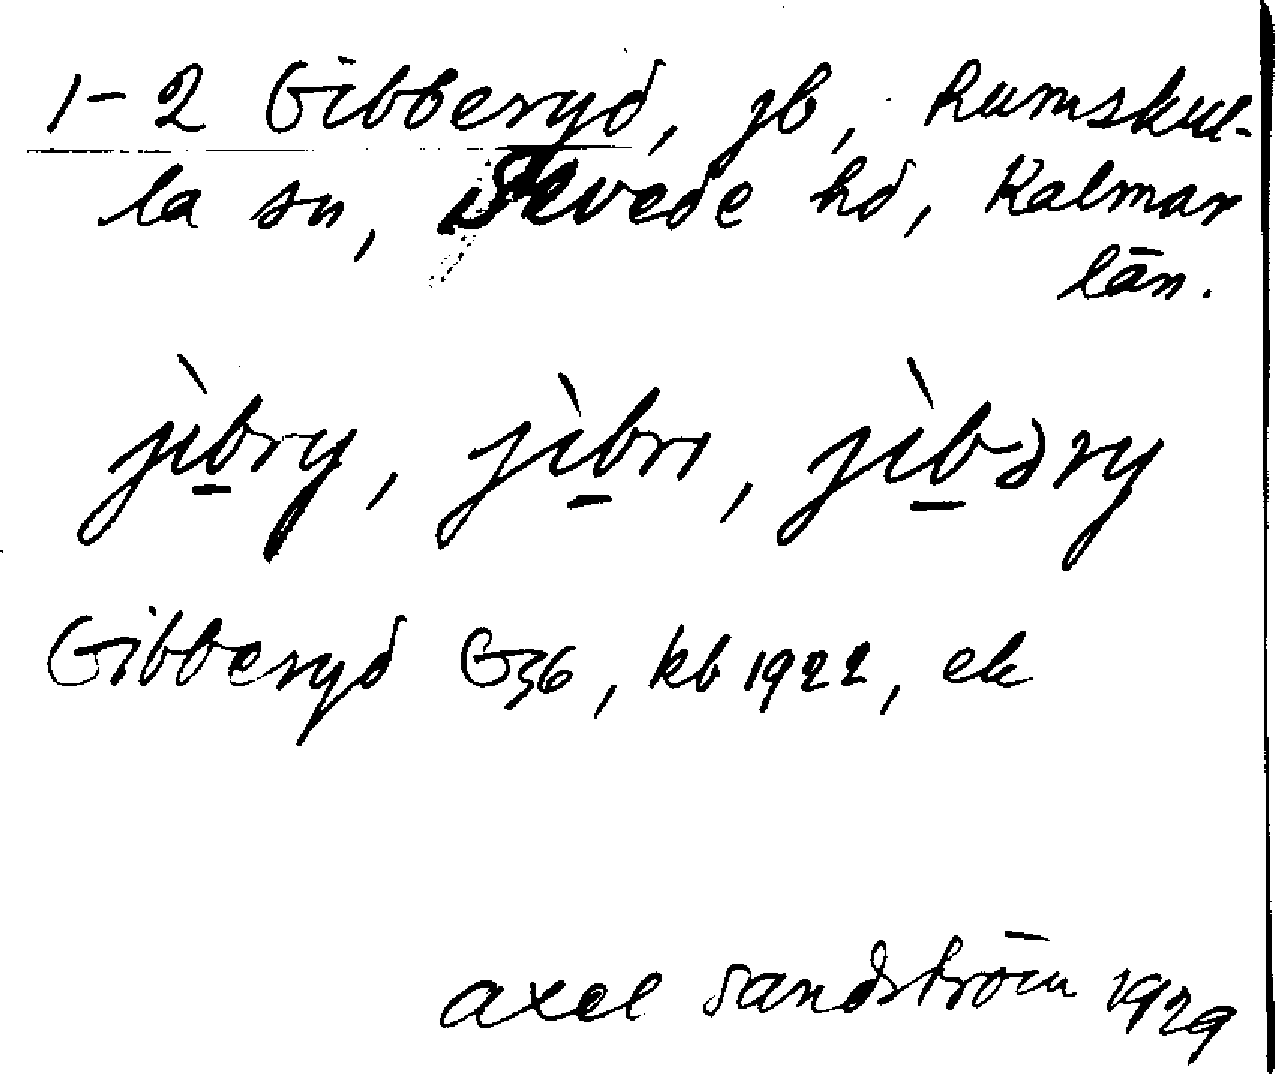 1-2 Gibberyd, jb, Rumskul-
la sn, Sevede hd, Kalmar
län.
jìb̲ry, jìb̲ri, jìb̲əry
Gibberyd G36, kb 1922, ek
Axel Sandström 1929